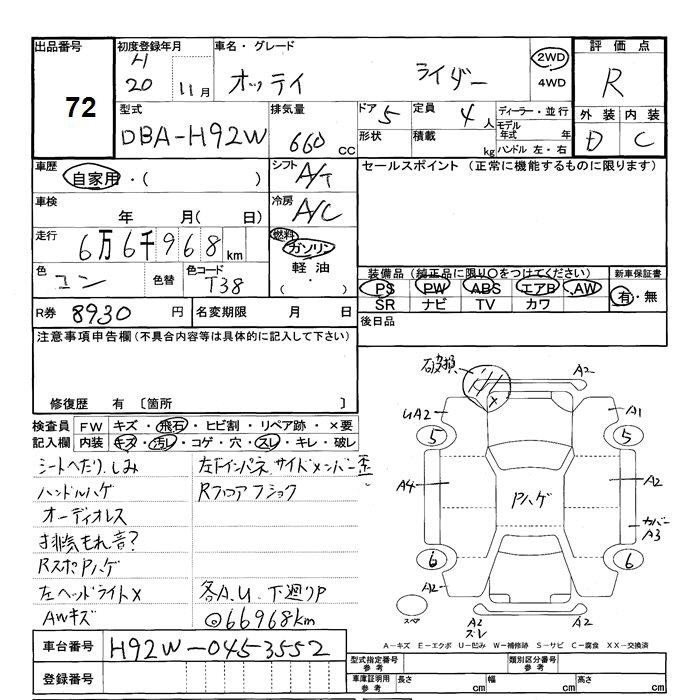 出品番号
72
初度登録年月
H
20 11月
車名・グレード
オッティ ライダー
2WD
4WD
評価点
R
外装 内装
D C
型式
DBA-H92W
排気量
660 CC
ドア 5
形状
定員 4人
積載 kg
ディーラー・並行
モデル年式 年
ハンドル 左・右
車歴
自家用・( )
シフト
A/T
車検
年 月( 日)
冷房
A/C
走行
6万6千968km
燃料
ガソリン
軽油
( ・ )
色
コン
色替
色コード
T38
R券 8930 円
名変期限 月 日
セールスポイント (正常に機能するものに限ります)
装備品 (純正品に限り○をつけてください)
PS PW ABS エアB AW
SR ナビ TV カワ
新車保証書
有・無
後日品
注意事項申告欄(不具合内容等は具体的に記入して下さい)
修復歴 有 〔箇所 〕
検査員記入欄
FW キズ・飛石・ヒビ割・リペア跡・×要
内装 キズ・汚レ・コゲ・穴・スレ・キレ・破レ
シートヘたり、しみ
左下インパネ、サイドメンバー歪
ハンドルハゲ
Rフロアフショク
オーディオレス
排気もれ音?
RスポPハゲ
左ヘッドライト×
各A.U. 下廻りP
AWキズ
◎66968km
破損
×
A2
UA2
A1
5
5
A4
Pハゲ
A2
カバー
A3
6
6
A2
スペア
A2
ズレ
A2
A-キズ E-エクボ U-凹み W-補修跡 S-サビ C-腐食 XX-交換済
車台番号
H92W-0453552
登録番号
型式指定番号 参考
類別区分番号 参考
車庫証明用 参考
長さ cm
幅 cm
高さ cm